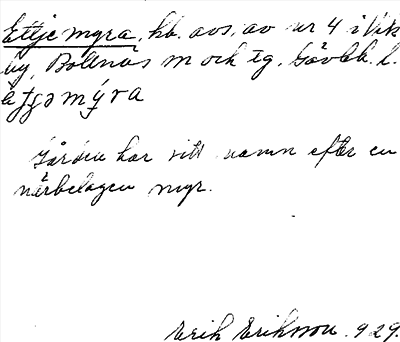 Ettjemyra, hb. avs. av nr 4 i Vik
by, Bollnäs m och tg, Gävleb. l.
Gården har sitt namn efter en
närbelagen myr.
Erik Eriksson. 929.